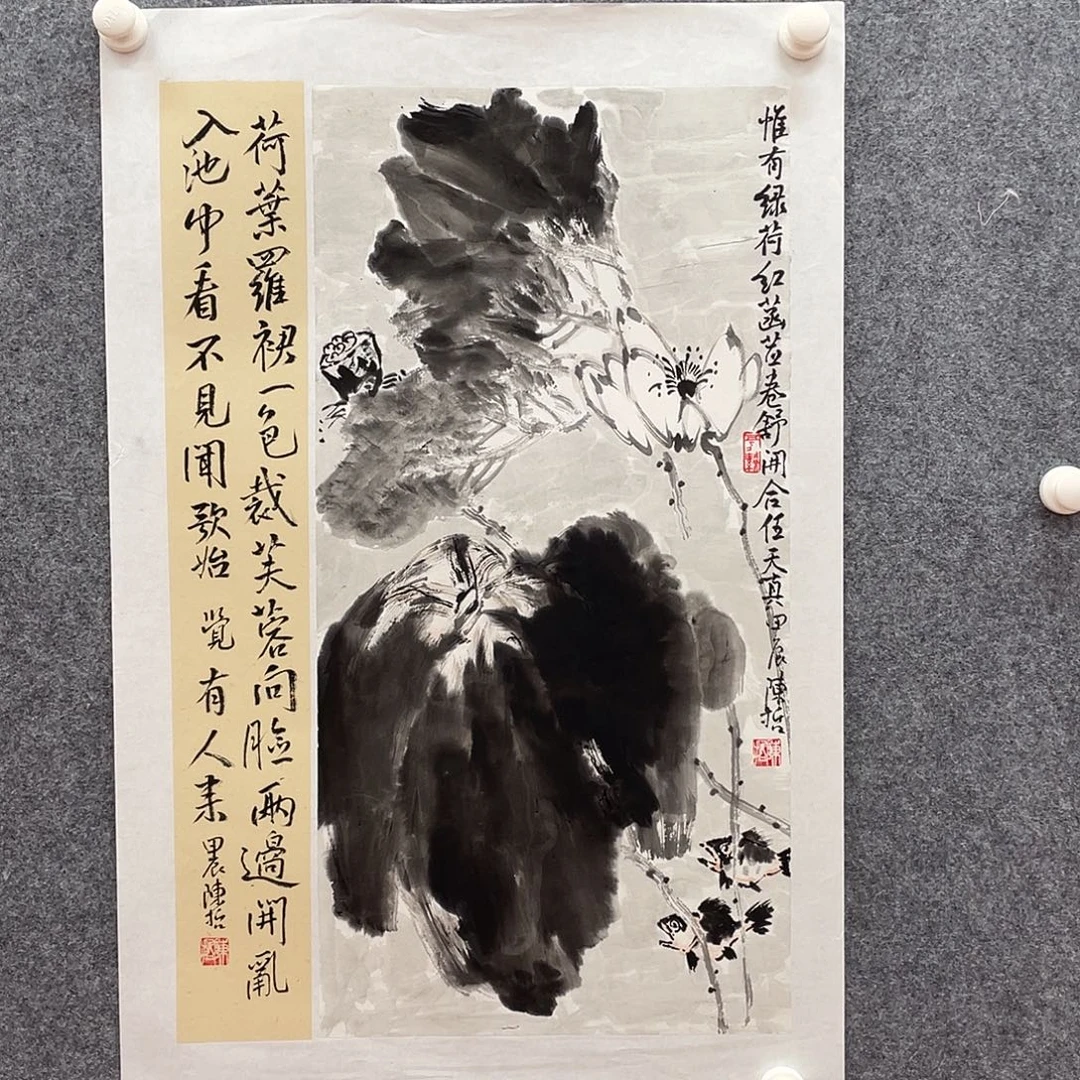 惟有绿荷红菡萏卷舒开合任天真甲辰陳哲
荷葉羅裙一色裁芙蓉向脸兩邊開亂
入池中看不見聞歌始覺有人来甲辰陳哲